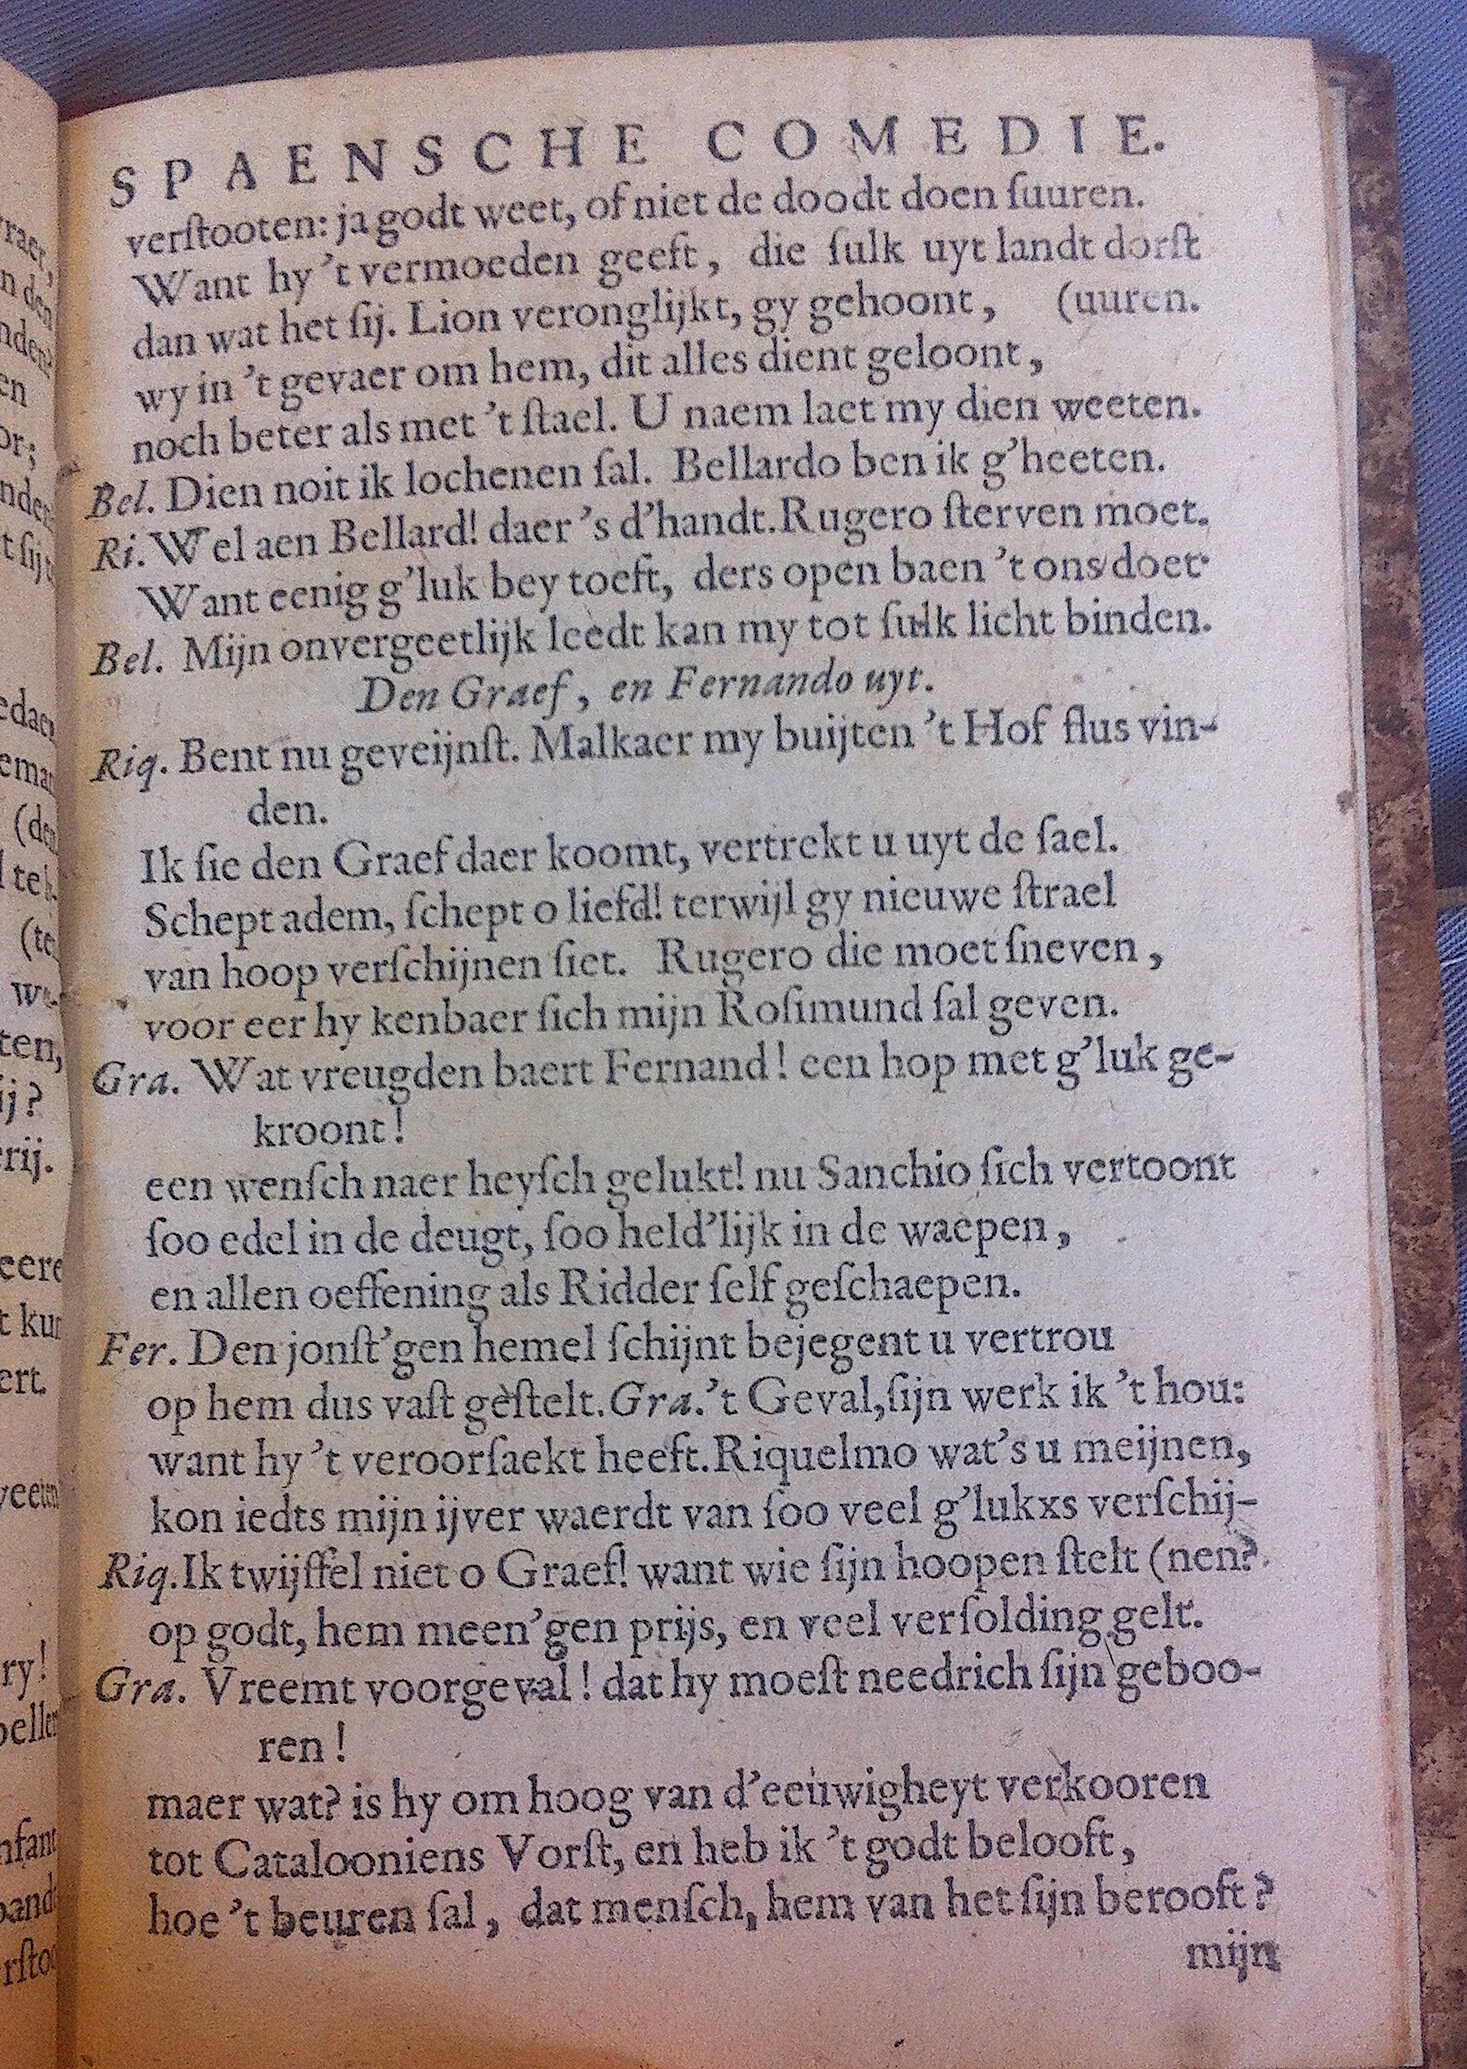 SPAENSCHE COMEDIE.
verſtooten: ja godt weet, of niet de doodt doen ſuuren.
Want hy 't vermoeden geeft, die ſulk uyt landt dorſt
dan wat het ſij. Lion veronglijkt, gy gehoont, (uuren.
wy in 't gevaer om hem, dit alles dient geloont,
noch beter als met 't ſtael. U naem laet my dien weeten.
Bel. Dien noit ik lochenen ſal. Bellardo ben ik g'heeten.
Ri. Wel aen Bellard! daer 's d'handt. Rugero ſterven moet.
Want eenig g'luk bey toeft, ders open baen 't ons doet
Bel. Mijn onvergeetlijk leedt kan my tot ſulk licht binden.
Den Graef, en Fernando uyt.
Riq. Bent nu geveijnſt. Malkaer my buijten 't Hof flus vin-
den.
Ik ſie den Graef daer koomt, vertrekt u uyt de ſael.
Schept adem, ſchept o liefd! terwijl gy nieuwe ſtrael
van hoop verſchijnen ſiet. Rugero die moet ſneven,
voor eer hy kenbaer ſich mijn Roſimund ſal geven.
Gra. Wat vreugden baert Fernand! een hop met g'luk ge-
kroont!
een wenſch naer heyſch gelukt! nu Sanchio ſich vertoont
ſoo edel in de deugt, ſoo held'lijk in de waepen,
en allen oeffening als Ridder ſelf geſchaepen.
Fer. Den jonſt'gen hemel ſchijnt bejegent u vertrou
op hem dus vaſt geſtelt. Gra. 't Geval, ſijn werk ik 't hou:
want hy 't veroorſaekt heeft. Riquelmo wat's u meijnen,
kon iedts mijn ijver waerdt van ſoo veel g'lukxs verſchij-
Riq. Ik twijffel niet o Graef! want wie ſijn hoopen ſtelt (nen?
op godt, hem meen'gen prijs, en veel verſolding gelt.
Gra. Vreemt voorgeval! dat hy moeſt needrich ſijn geboo-
ren!
maer wat? is hy om hoog van d'eeuwigheyt verkooren
tot Catalooniens Vorſt, en heb ik 't godt belooft,
hoe 't beuren ſal, dat menſch, hem van het ſijn berooft?
mijn